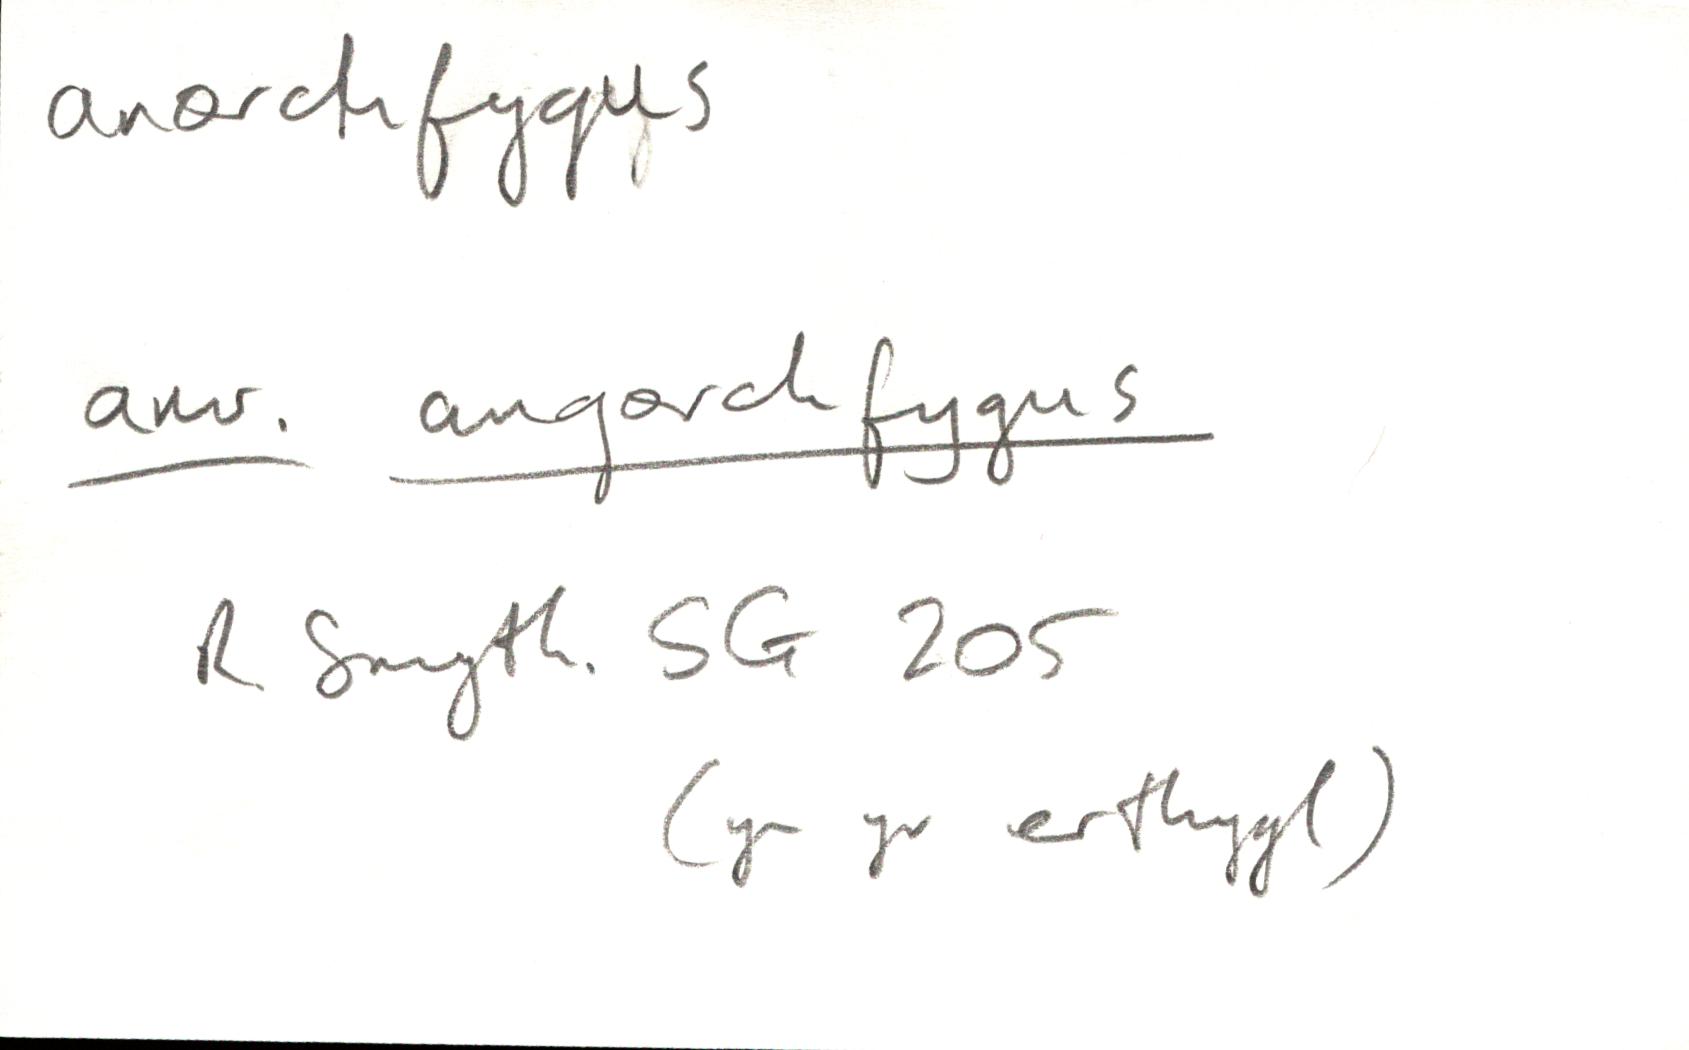 anorchfygus
amr. angorchfygus
R Smyth. SG 205
(yn yr erthygl)